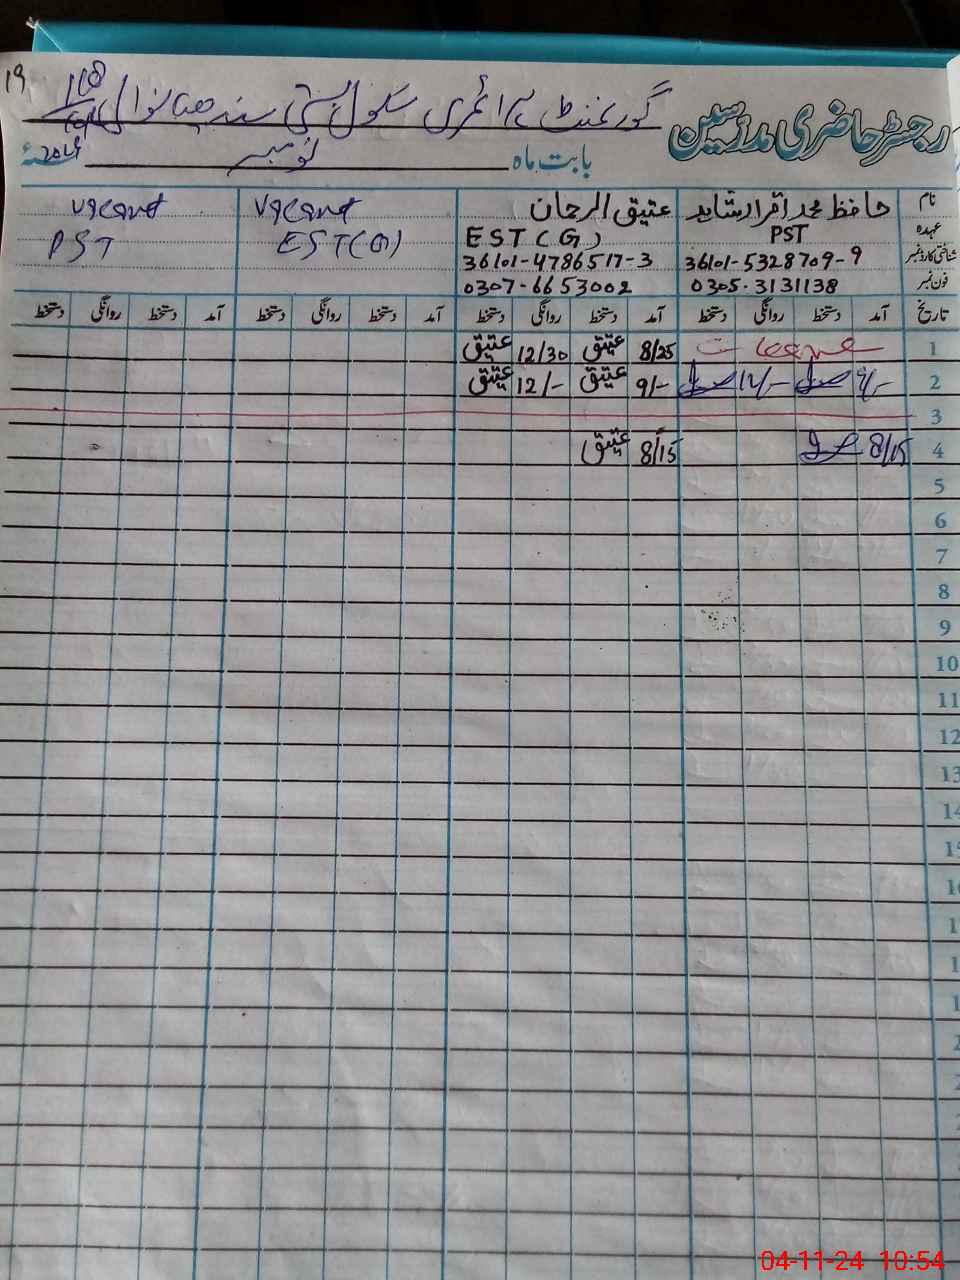 ۱۹
رجسٹر حاضری مدرسین گورنمنٹ پرائمری سکول بستی
بابت ماہ نومبر 2024ء
نام حافظ محمد اقرار شاہد عتیق الرحمان Vacant Vacant
عہدہ PST EST (G) EST (G) PST
شناختی کارڈ نمبر 36101-5328709-9 36101-4786517-3
فون نمبر 0305-3131138 0307-6653002
تاریخ آمد دستخط روانگی دستخط آمد دستخط روانگی دستخط آمد دستخط روانگی دستخط آمد دستخط روانگی دستخط
1 8/25 عتیق 12/30 عتیق
2 9/- 12/- 9/- عتیق 12/- عتیق
3
4 8/15 8/15 عتیق
5
6
7
8
9
10
11
12
13
04-11-24 10:54